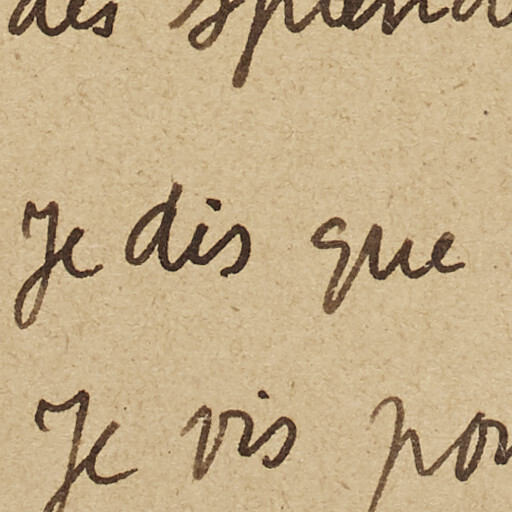 des splend
Je dis que
Je vis pou